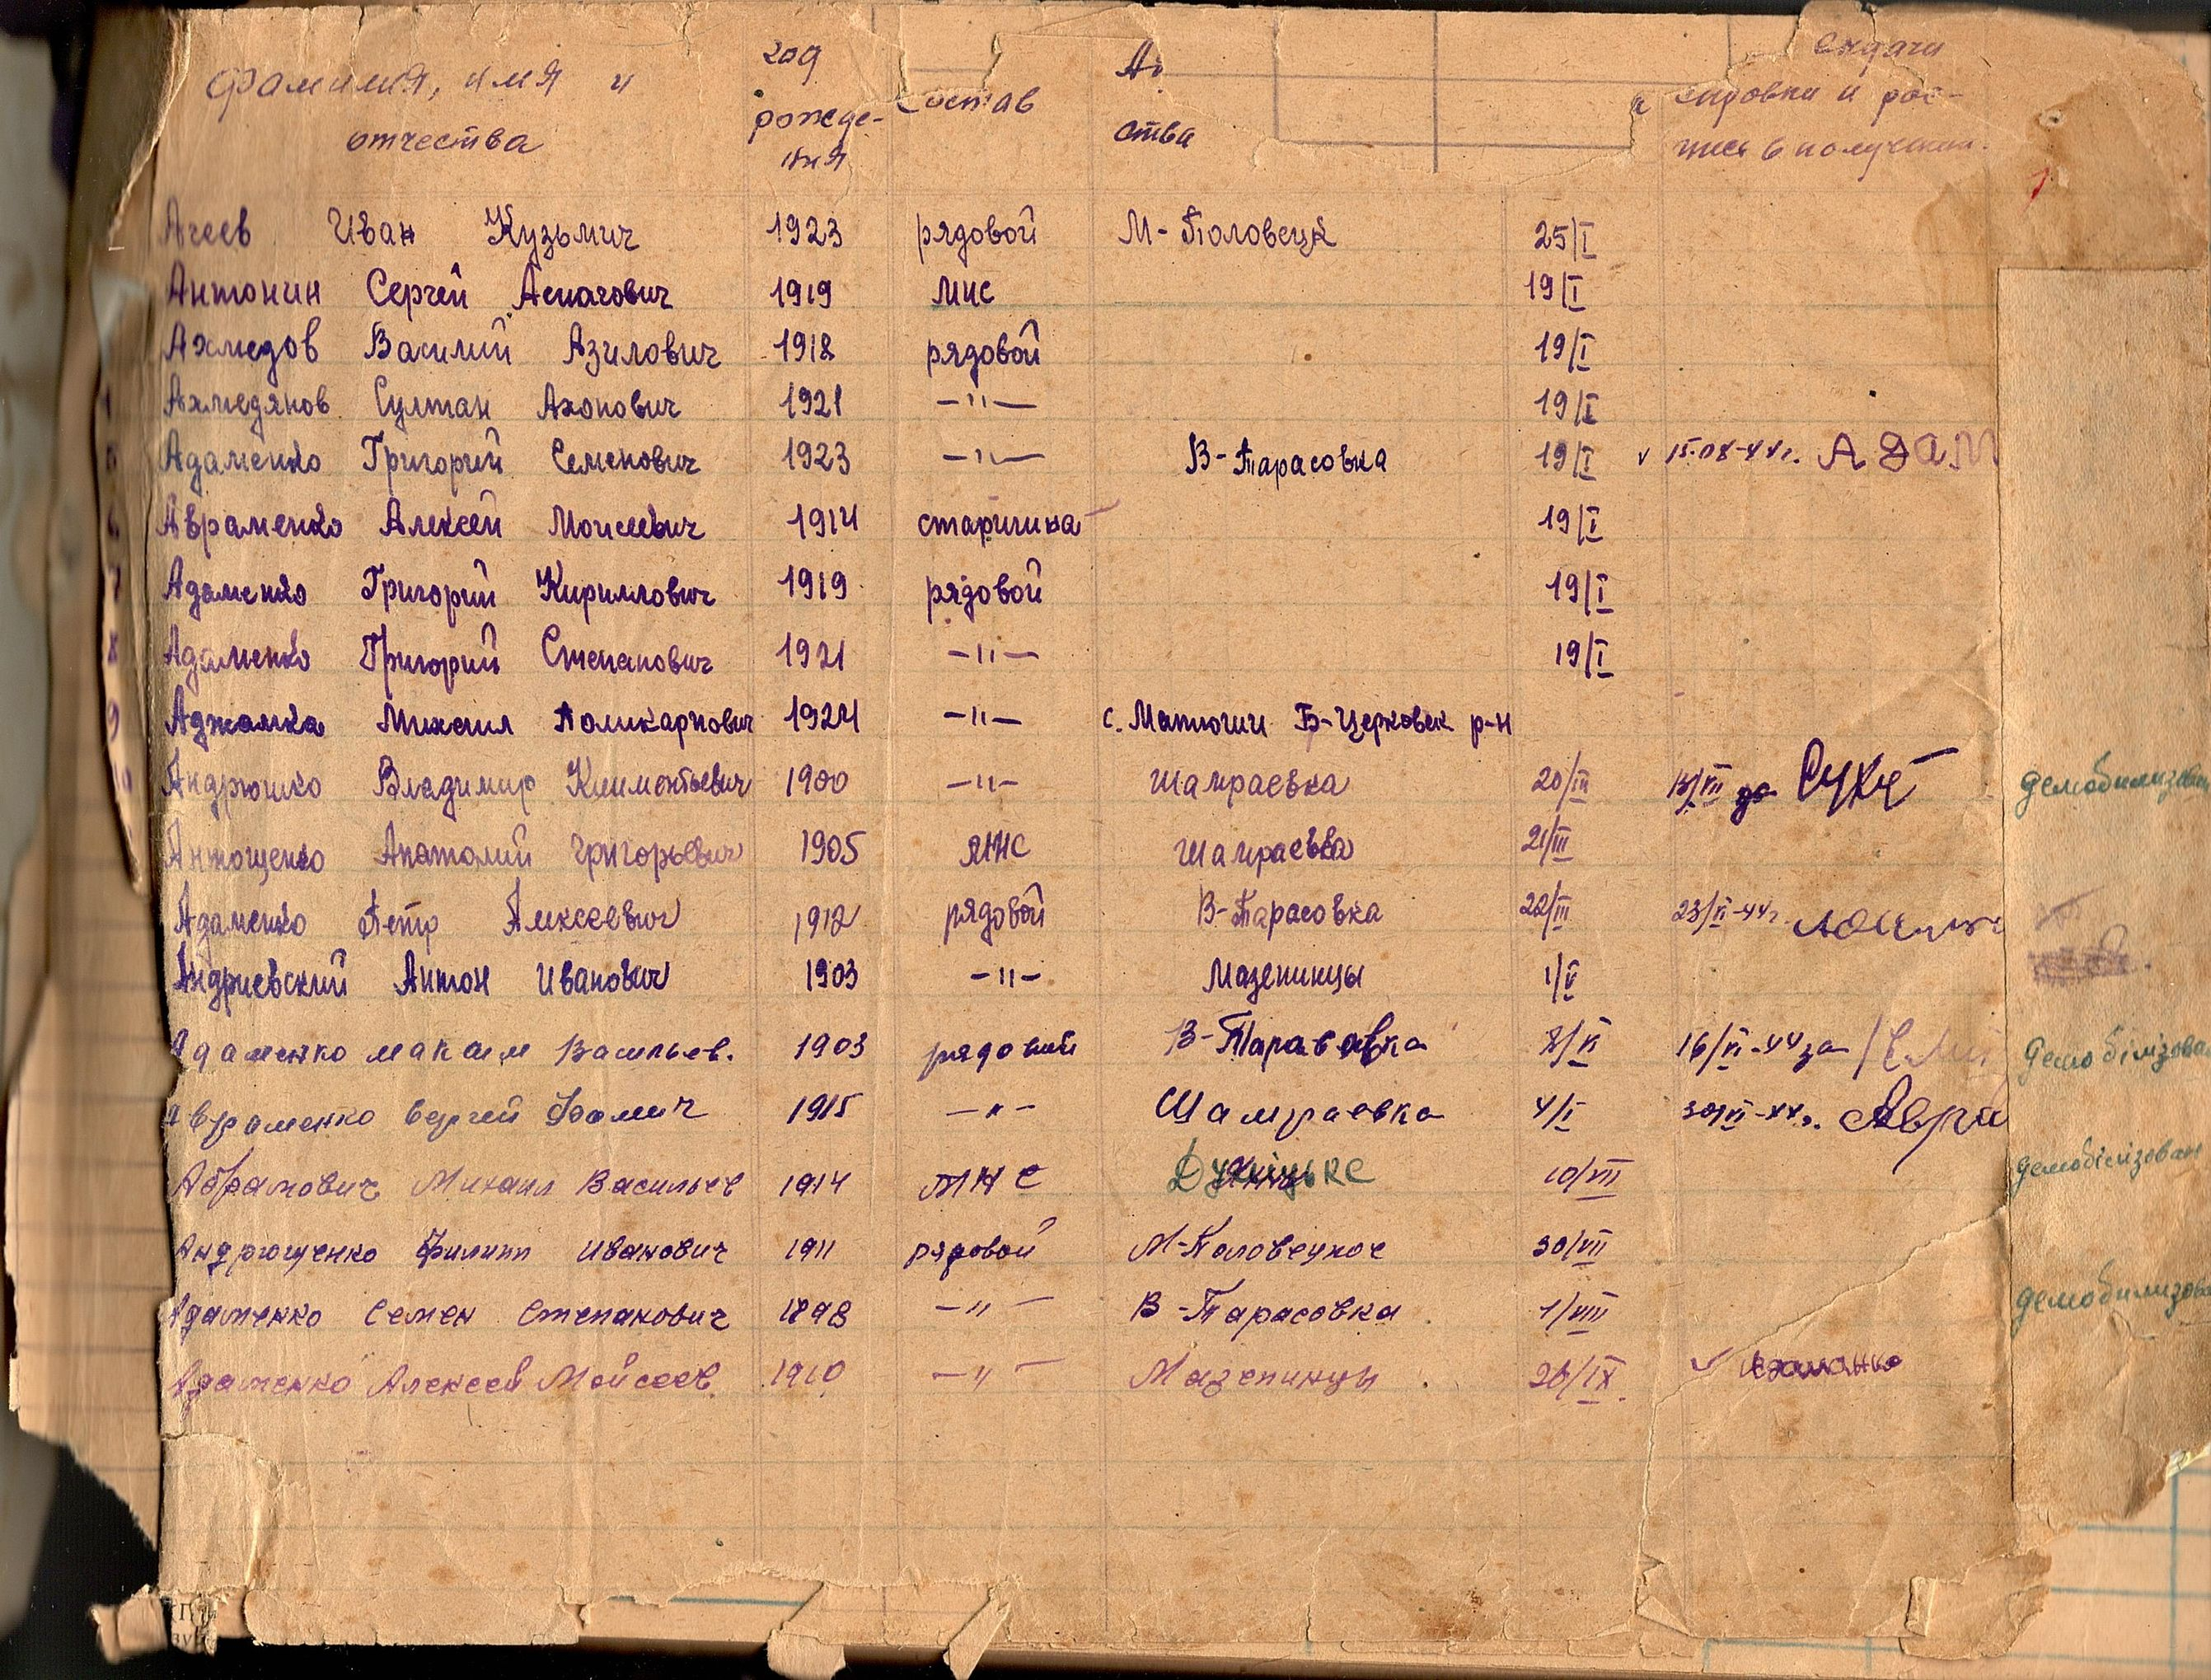 год выдачи
Фамилия, имя и рожде- состав справки и рос-
отчества ния ства пись в получении.
Агеев Иван Кузьмич 1923 рядовой М-Половецк 25/I
Антонин Сергей 1919 МНС 19/I
Ахмедов Василий Азилович 1918 рядовой 19/I
Ахмедянов Султан Ахонович 1921 —"— 19/I
Адаменко Григорий Семенович 1923 —"— В-Тарасовка 19/I v АДАМ
6 Авраменко Алексей Моисеевич 1914 старшина 19/I
7 Адаменко Григорий Кириллович 1919 рядовой 19/I
8 Адаменко Григорий Степанович 1921 —"— 19/I
9 Аджамка Михаил Поликарпович 1924 —"— с. Матюши Б-Церковск р-н
10 Андрюшко Владимир Климентьевич 1900 —"— Шамраевка 20/III за демобилизован
Антощенко Анатолий Григорьевич 1905 МНС Шамраевка 21/III
Адаменко Петр Алексеевич 1912 рядовой В-Тарасовка 22/III 23/VI-44г.
Андриевский Антон Иванович 1903 —"— Мазепинцы 1/V
Адаменко Максим Васильев. 1903 рядовий В-Тарасовка 8/VI 16/VI-44 за демобілізова
Авраменко Сергей Фомич 1915 —"— Шамраевка 4/I 30/VI-44г. Авра
Абрамович Михаил Васильев 1914 МНС 10/VII демобілізован
Андрющенко Филипп Иванович 1911 рядовой М-Половецкое 30/VII
Адаменко Семен Степанович 1898 —"— В-Тарасовка 1/VIII демобилизова
Адаменко Алексей Мойсеев. 1910 —"— Мазепинцы 26/IX. v